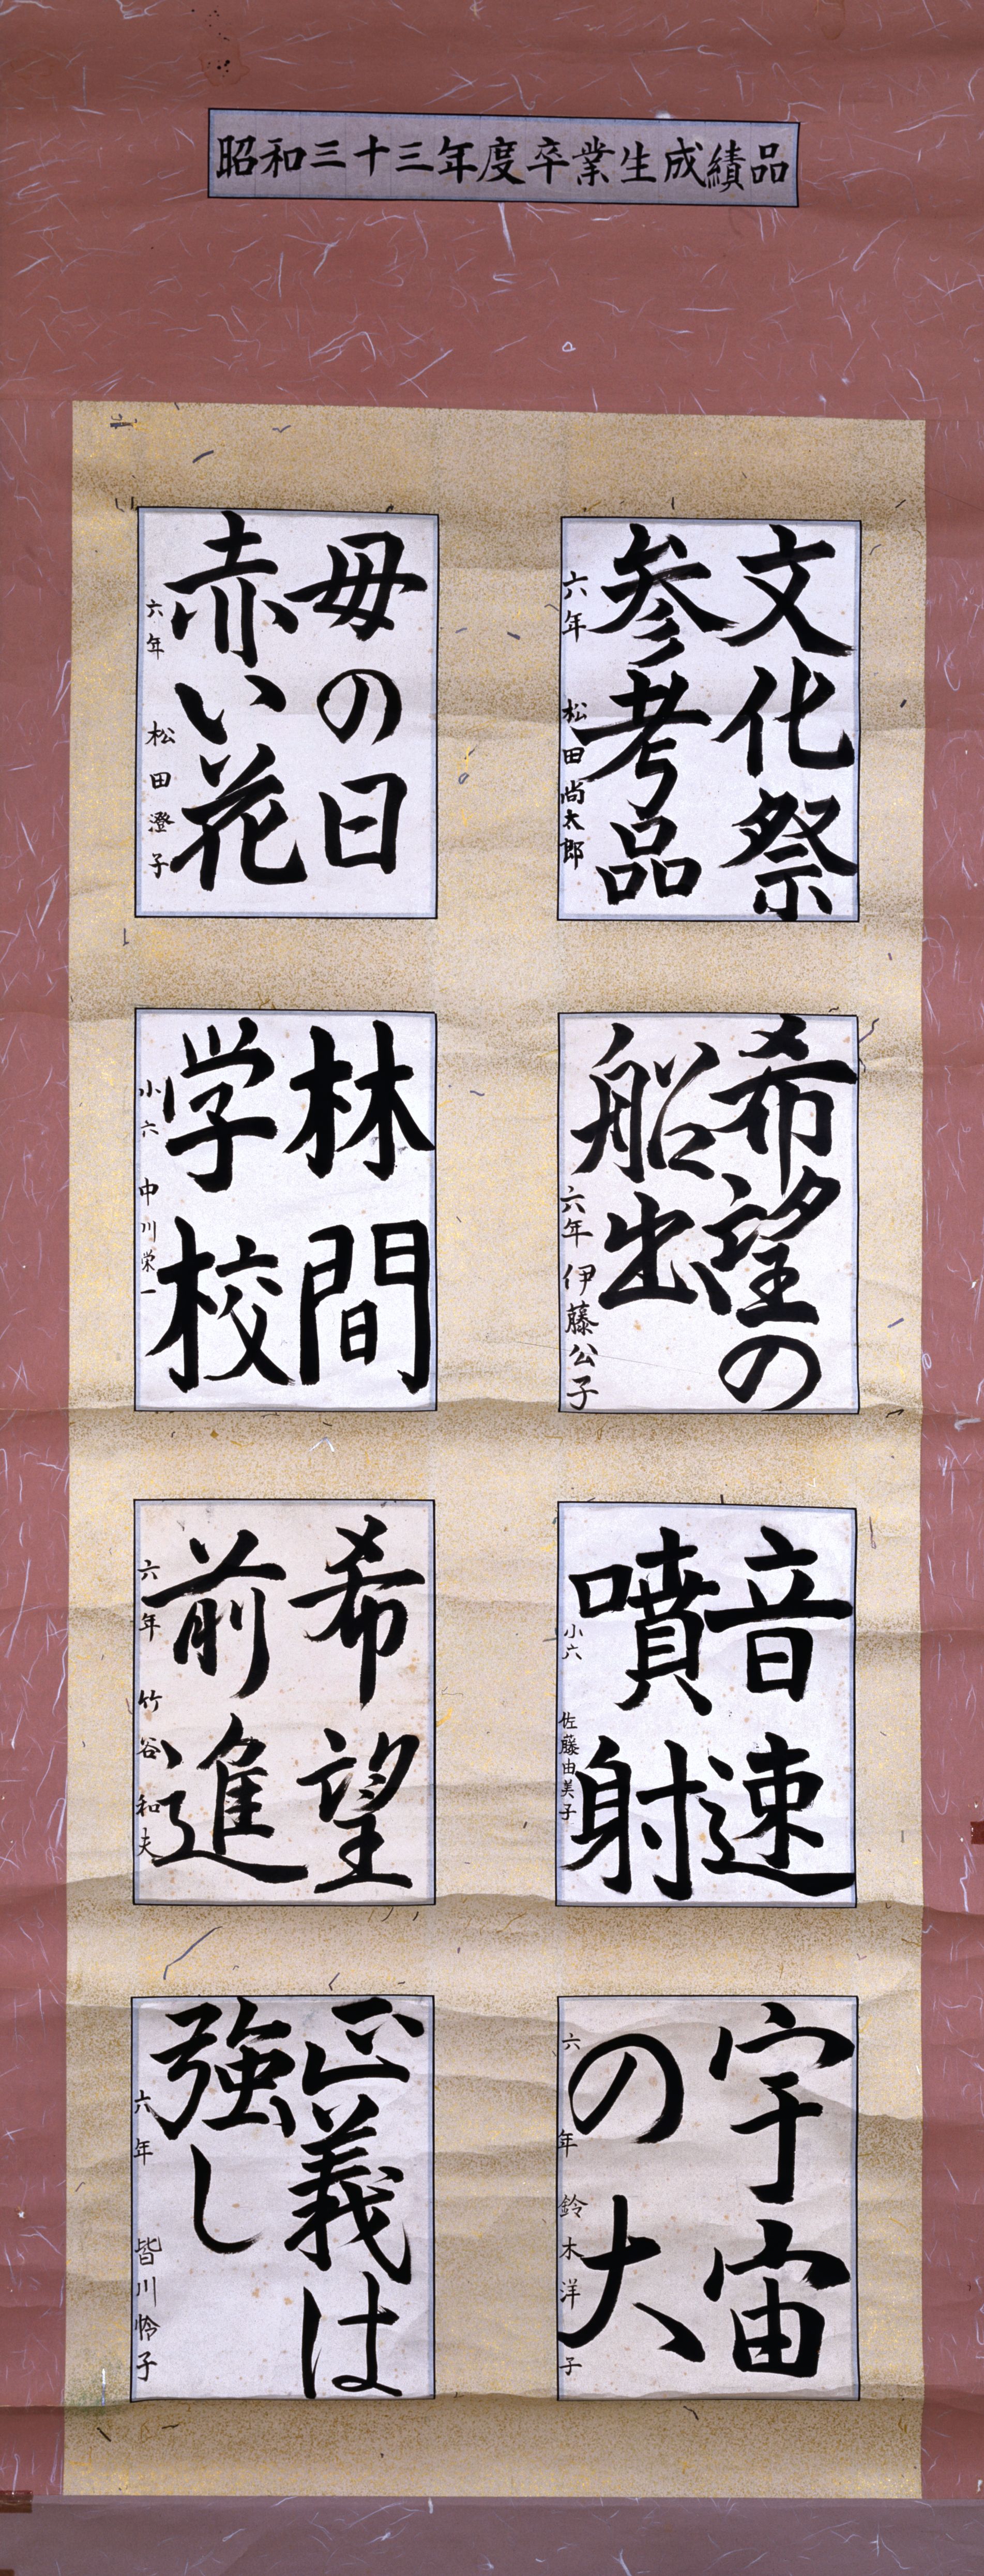 昭和三十三年度卒業生成績品
文化祭
参考品
六年 松田尚太郎
母の日
赤い花
六年 松田澄子
希望の
船出
六年 伊藤公子
林間
学校
小六 中川栄一
音速
噴射
小六 佐藤由美子
希望
前進
六年 竹谷和夫
宇宙
の大
六年 鈴木洋子
正義は
強し
六年 皆川怜子